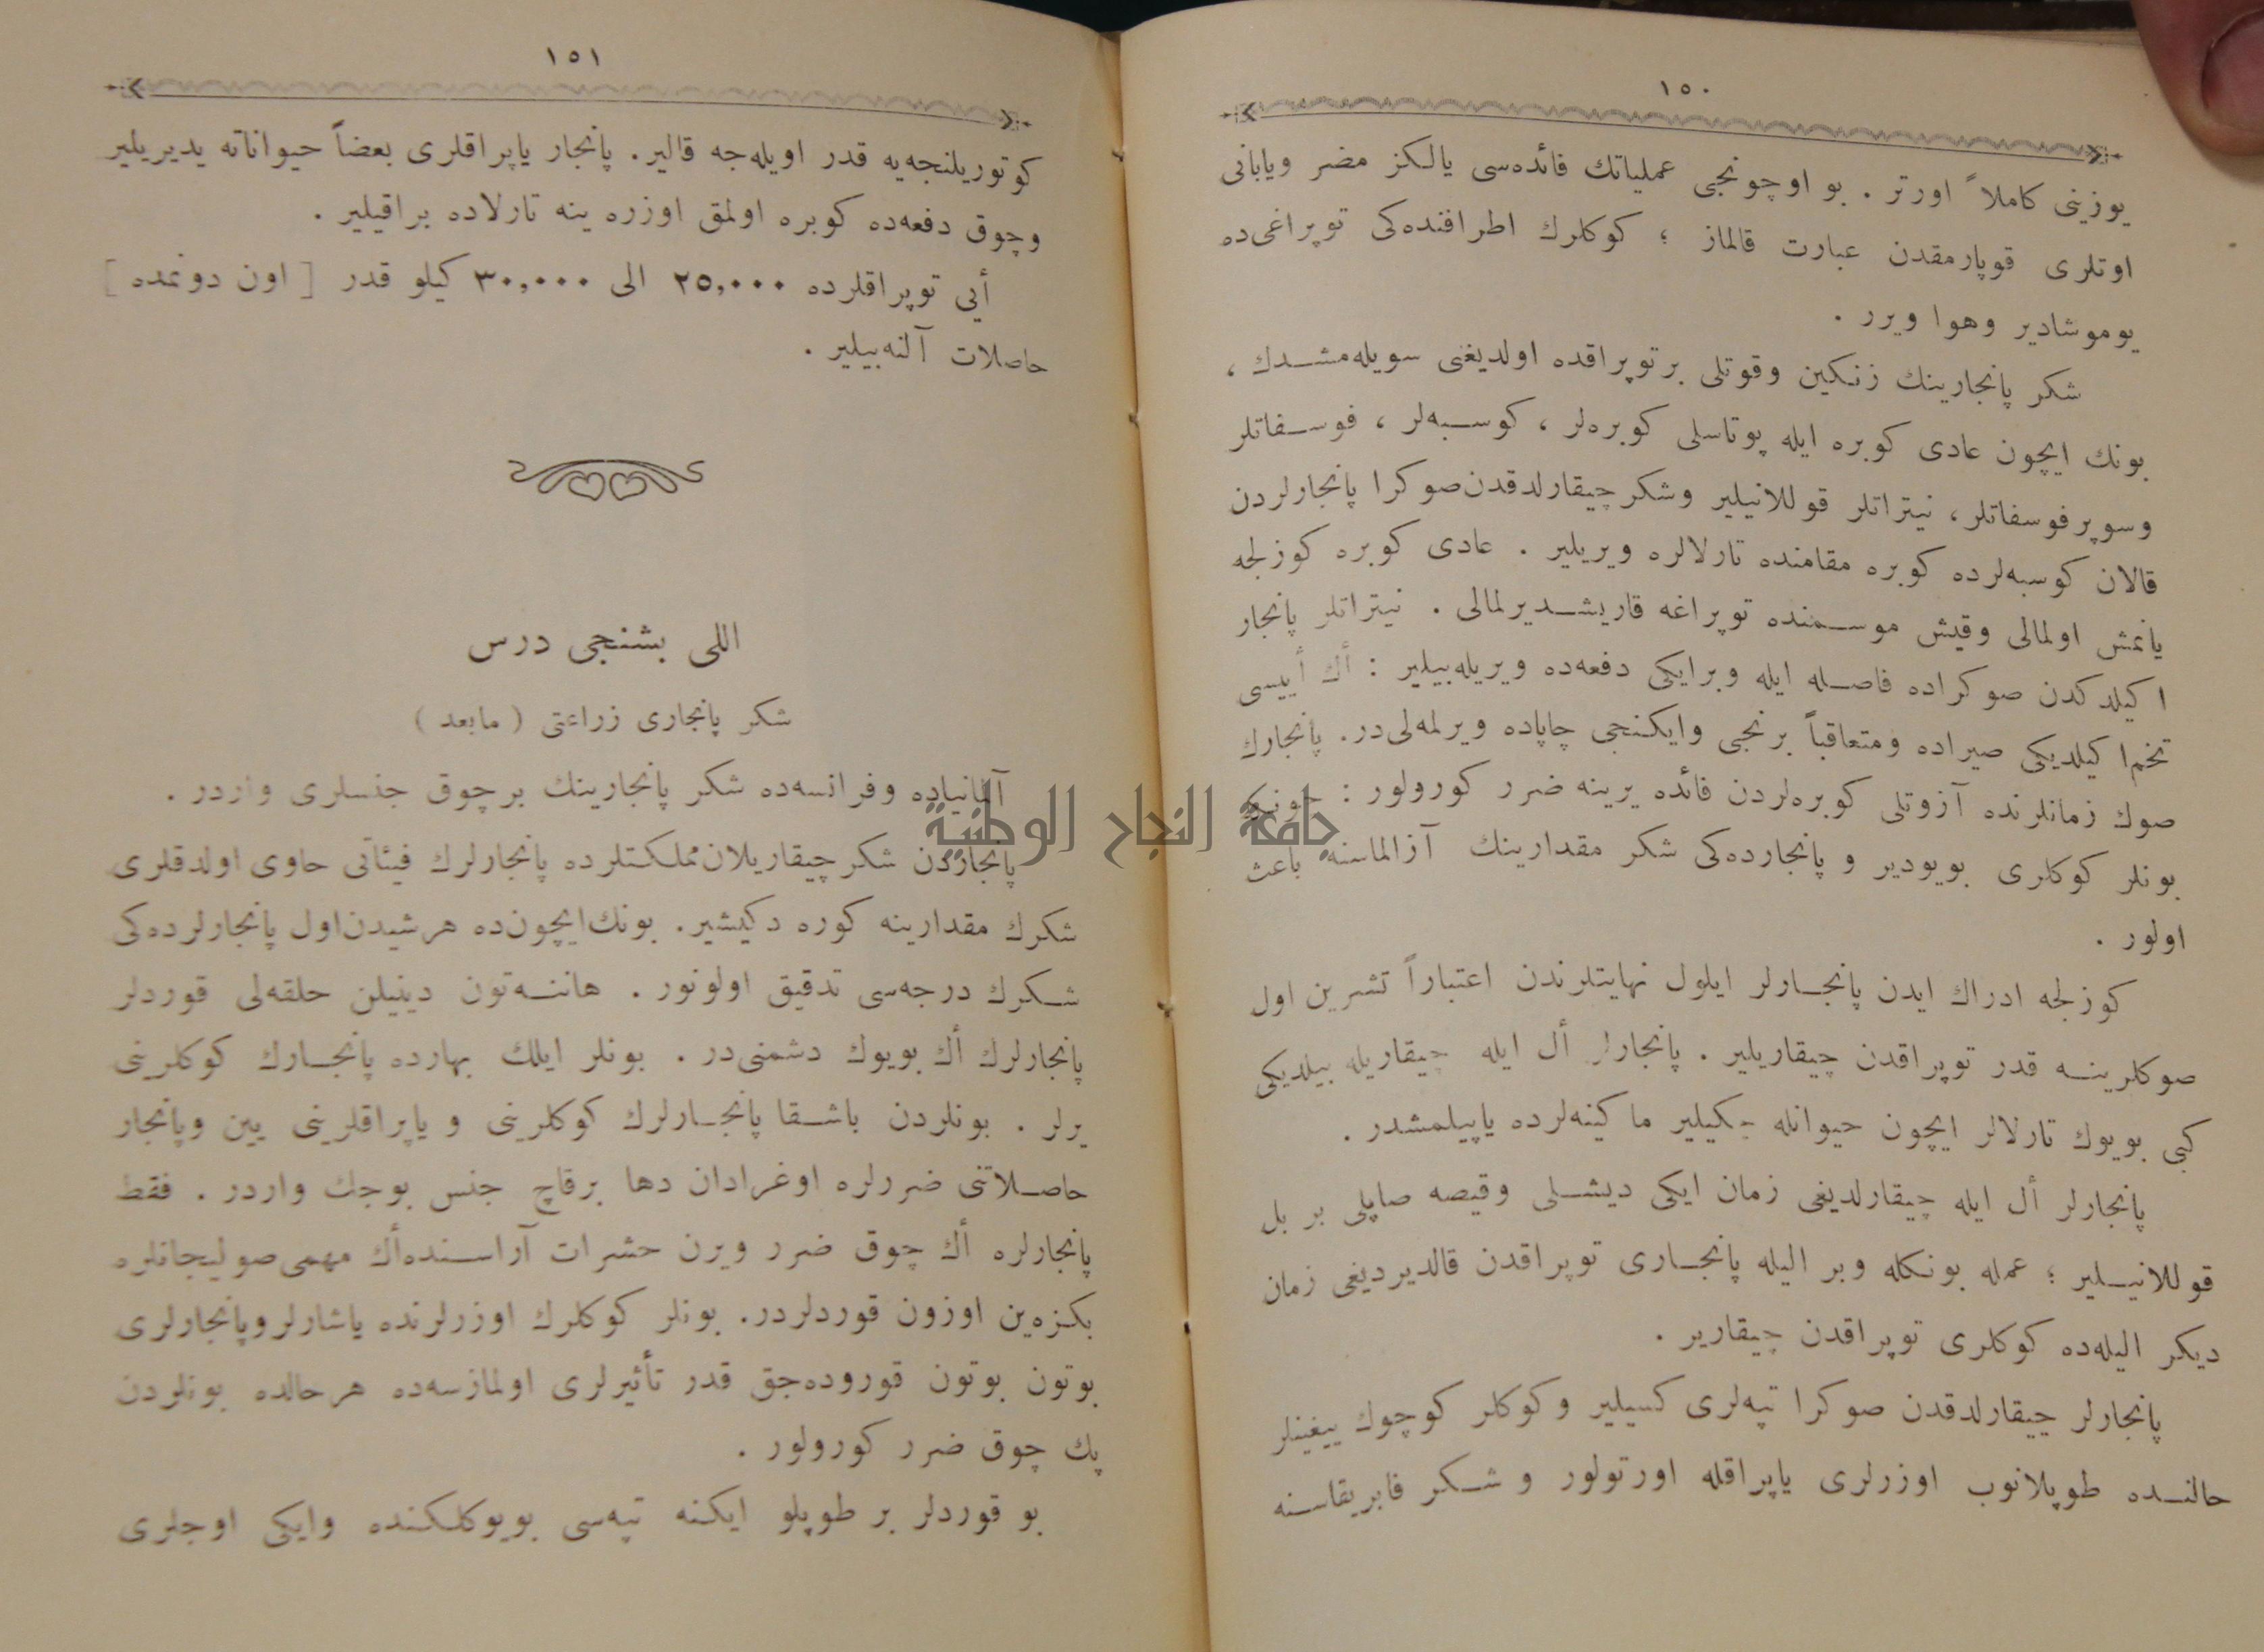 ١٥٠
يوزينى كاملاً اورتر . بو اوچونجى عملياتك فائده‌سى يالكز مضر ويابانى
اوتلرى قوپارمقدن عبارت قالماز ؛ كوكلرك اطرافنده‌كى توپراغى‌ده
يوموشادير وهوا ويرر .
شكر پانجارينك زنكين وقوتلى برتوپراقده اولديغنى سويله‌مشدك ،
بونك ايچون عادى كوبره ايله پوتاسلى كوبره‌لر ، كوسبه‌لر ، فوسفاتلر
وسوپرفوسفاتلر، نيتراتلر قوللانيلير وشكر چيقارلدقدن‌صوكرا پانجارلردن
قالان كوسبه‌لرده كوبره مقامنده تارلالره ويريلير . عادى كوبره كوزلجه
يانمش اولمالى وقيش موسمنده توپراغه قاريشديرلمالى . نيتراتلر پانجار
اكيلدكدن صوكراده فاصله ايله وبرايكى دفعه‌ده ويريله‌بيلير : أك أييسى
تخم‌اكيلديكى صيراده ومتعاقباً برنجى وايكنجى چاپاده ويرلمه‌لى‌در. پانجارك
صوك زمانلرنده آزوتلى كوبره‌لردن فائده يرينه ضرر كورولور : چونكه
بونلر كوكلرى بويودير و پانجارده‌كى شكر مقدارينك آزالماسنه باعث
اولور .
كوزلجه ادراك ايدن پانجارلر ايلول نهايتلرندن اعتباراً تشرين اول
صوكلرينه قدر توپراقدن چيقاريلير . پانجارلر أل ايله چيقاريله بيلديكى
كبى بويوك تارلالر ايچون حيوانله چكيلير ماكينه‌لرده ياپيلمشدر .
پانجارلر أل ايله چيقارلديغى زمان ايكى ديشلى وقيصه صاپلى بر بل
قوللانيلير ؛ عمله بونكله وبر اليله پانجارى توپراقدن قالديرديغى زمان
ديكر اليله‌ده كوكلرى توپراقدن چيقارير .
پانجارلر چيقارلدقدن صوكرا تپه‌لرى كسيلير وكوكلر كوچوك ييغينلر
حالنده طوپلانوب اوزرلرى ياپراقله اورتولور و شكر فابريقاسنه
١٥١
كوتوريلنجه‌يه قدر اويله‌جه قالير. پانجار ياپراقلرى بعضاً حيواناته يديريلير
وچوق دفعه‌ده كوبره اولمق اوزره ينه تارلاده براقيلير .
أيى توپراقلرده ٢٥,٠٠٠ الى ٣٠,٠٠٠ كيلو قدر [ اون دونمده ]
حاصلات آلنه‌بيلير .
اللى بشنجى درس
شكر پانجارى زراعتى ( مابعد )
آلمانياده وفرانسه‌ده شكر پانجارينك برچوق جنسلرى واردر .
پانجاردن شكر چيقاريلان‌مملكتلرده پانجارلرك فيئاتى حاوى اولدقلرى
شكرك مقدارينه كوره دكيشير. بونك‌ايچون‌ده هرشيدن‌اول پانجارلرده‌كى
شكرك درجه‌سى تدقيق اولونور . هاننه‌تون دينيلن حلقه‌لى قوردلر
پانجارلرك أك بويوك دشمنى‌در . بونلر ايلك بهارده پانجارك كوكلرينى
يرلر . بونلردن باشقا پانجارلرك كوكلرينى و ياپراقلرينى يين وپانجار
حاصلاتنى ضررلره اوغرادان دها برقاچ جنس بوجك واردر . فقط
پانجارلره أك چوق ضرر ويرن حشرات آراسنده‌أك مهمى‌صوليجانلره
بكزه‌ين اوزون قوردلردر. بونلر كوكلرك اوزرلرنده ياشارلروپانجارلرى
بوتون بوتون قوروده‌جق قدر تأثيرلرى اولمازسه‌ده هرحالده بونلردن
پك چوق ضرر كورولور .
بو قوردلر بر طوپلو ايكنه تپه‌سى بويوكلكنده وايكى اوجلرى
جامعة النجاح الوطنية